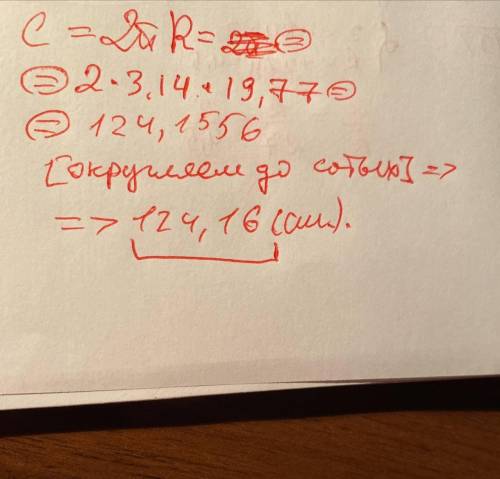 C = 2πR = ⊜
⊜ 2 · 3,14 · 19,77 ⊜
⊜ 124,1556
[округляем до сотых] =>
=> 124,16 (см).